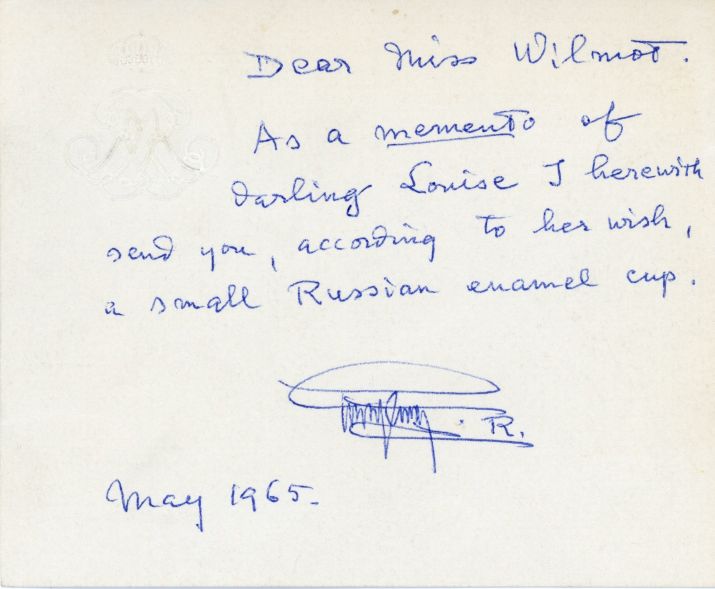 Dear Miss Wilmot.
As a memento of
darling Louise I herewith
send you, according to her wish,
a small Russian enamel cup.
R.
May 1965.